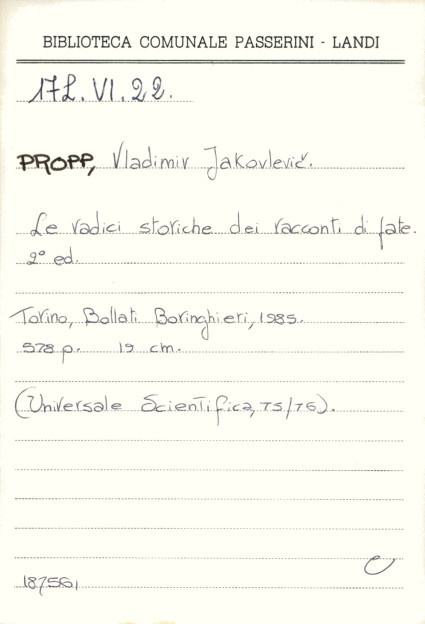 BIBLIOTECA COMUNALE PASSERINI - LANDI
17L.VI.22.
PROPP, Vladimir Jakovlevič.
Le radici storiche dei racconti di fate.
2° ed.
Torino, Bollati Boringhieri, 1985.
578 p. 19 cm.
(Universale Scientifica, 75/76).
C
187561